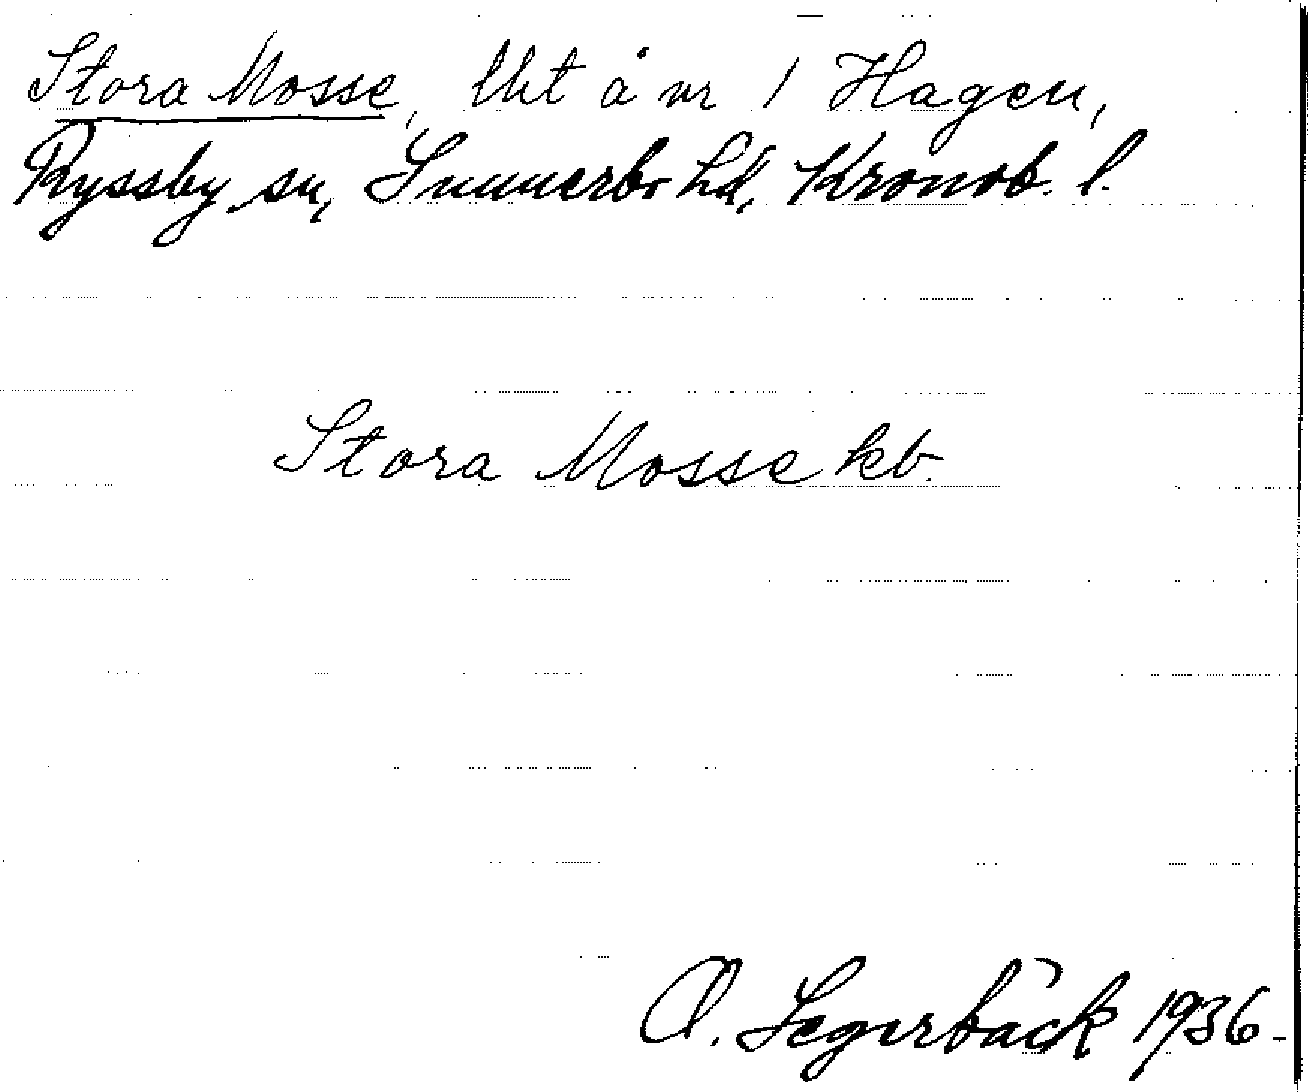 Stora Mosse, lht å nr 1 Hagen,
Ryssby sn, Sunnerbo hd, Kronob. l.
Stora Mosse kb.
O. Segerbäck 1936.